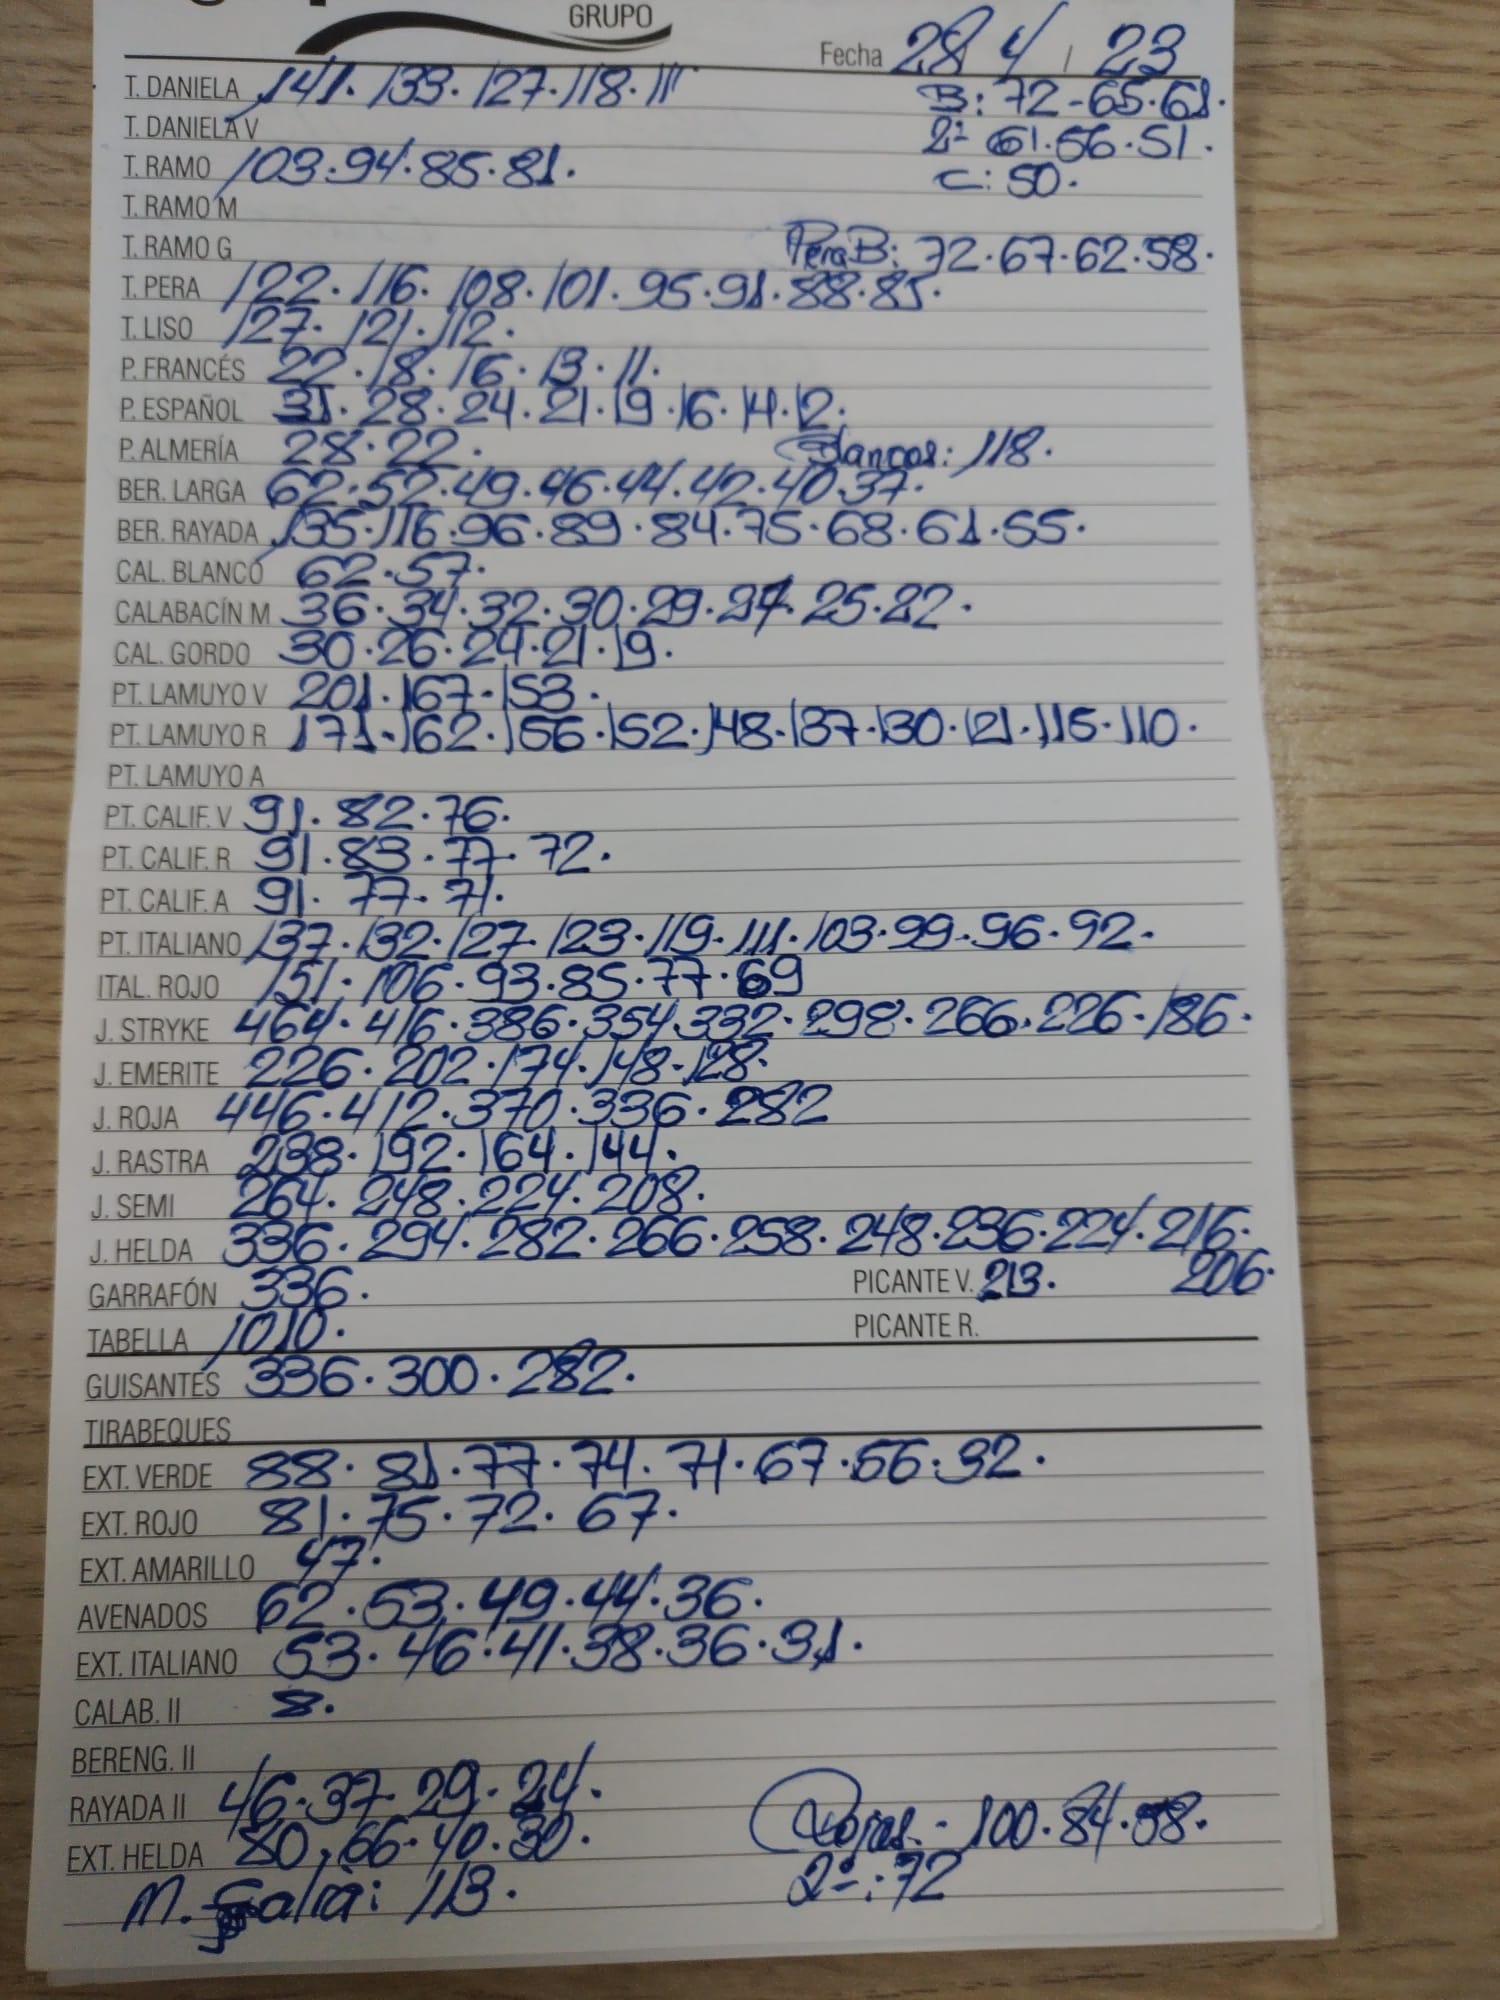 GRUPO
Fecha 28 4 / 23
T. DANIELA 141. 133. 127. 118. 111
B: 72-65.61.
T. DANIELA V
2ª 61.56.51.
T. RAMO 103.94.85.81.
C: 50.
T. RAMO M
T. RAMO G
Pera B: 72.67.62.58.
T. PERA 122. 116. 108. 101. 95. 91. 88. 85.
T. LISO 127. 121. 112.
P. FRANCÉS 22. 18. 16. 13. 11.
P. ESPAÑOL 31. 28. 24. 21. 19. 16. 14. 12.
P. ALMERÍA 28. 22.
Blancos: 118.
BER. LARGA 62.52.49.46.44.42.40.37.
BER. RAYADA 135.116.96.89.84.75.68.61.55.
CAL. BLANCO 62.57.
CALABACÍN M 36.34.32.30.29.27.25.22.
CAL. GORDO 30.26.24.21.19.
PT. LAMUYO V 201. 167-153.
PT. LAMUYO R 171.162.156.152.148.137.130.121.115.110.
PT. LAMUYO A
PT. CALIF. V 91. 82.76.
PT. CALIF. R 91.83.77.72.
PT. CALIF. A 91. 77. 71.
PT. ITALIANO 137.132.127.123.119.111.103.99.96.92.
ITAL. ROJO 151. 106.93.85.77.69
J. STRYKE 464. 416.386.354.332.298.266.226.186.
J. EMERITE 226. 202.174.148.128.
J. ROJA 446.412.370.336.282
J. RASTRA 238.192.164.144.
J. SEMI 264. 248.224.208.
J. HELDA 336.294.282.266.258.248.236.224.216.
206.
GARRAFÓN 336.
PICANTE V. 213.
TABELLA 1010.
PICANTE R.
GUISANTES 336.300.282.
TIRABEQUES
EXT. VERDE 88. 81.77.74.71.67.56.32.
EXT. ROJO 81.75.72.67.
EXT. AMARILLO 47.
AVENADOS 62.53.49.44.36.
EXT. ITALIANO 53.46.41.38.36.31.
CALAB. II 8.
BERENG. II
RAYADA II 46.37.29.24.
EXT. HELDA 80.66.40.30.
Rojas.- 100.84.58.
2ª: 72
M. Galia: 113.